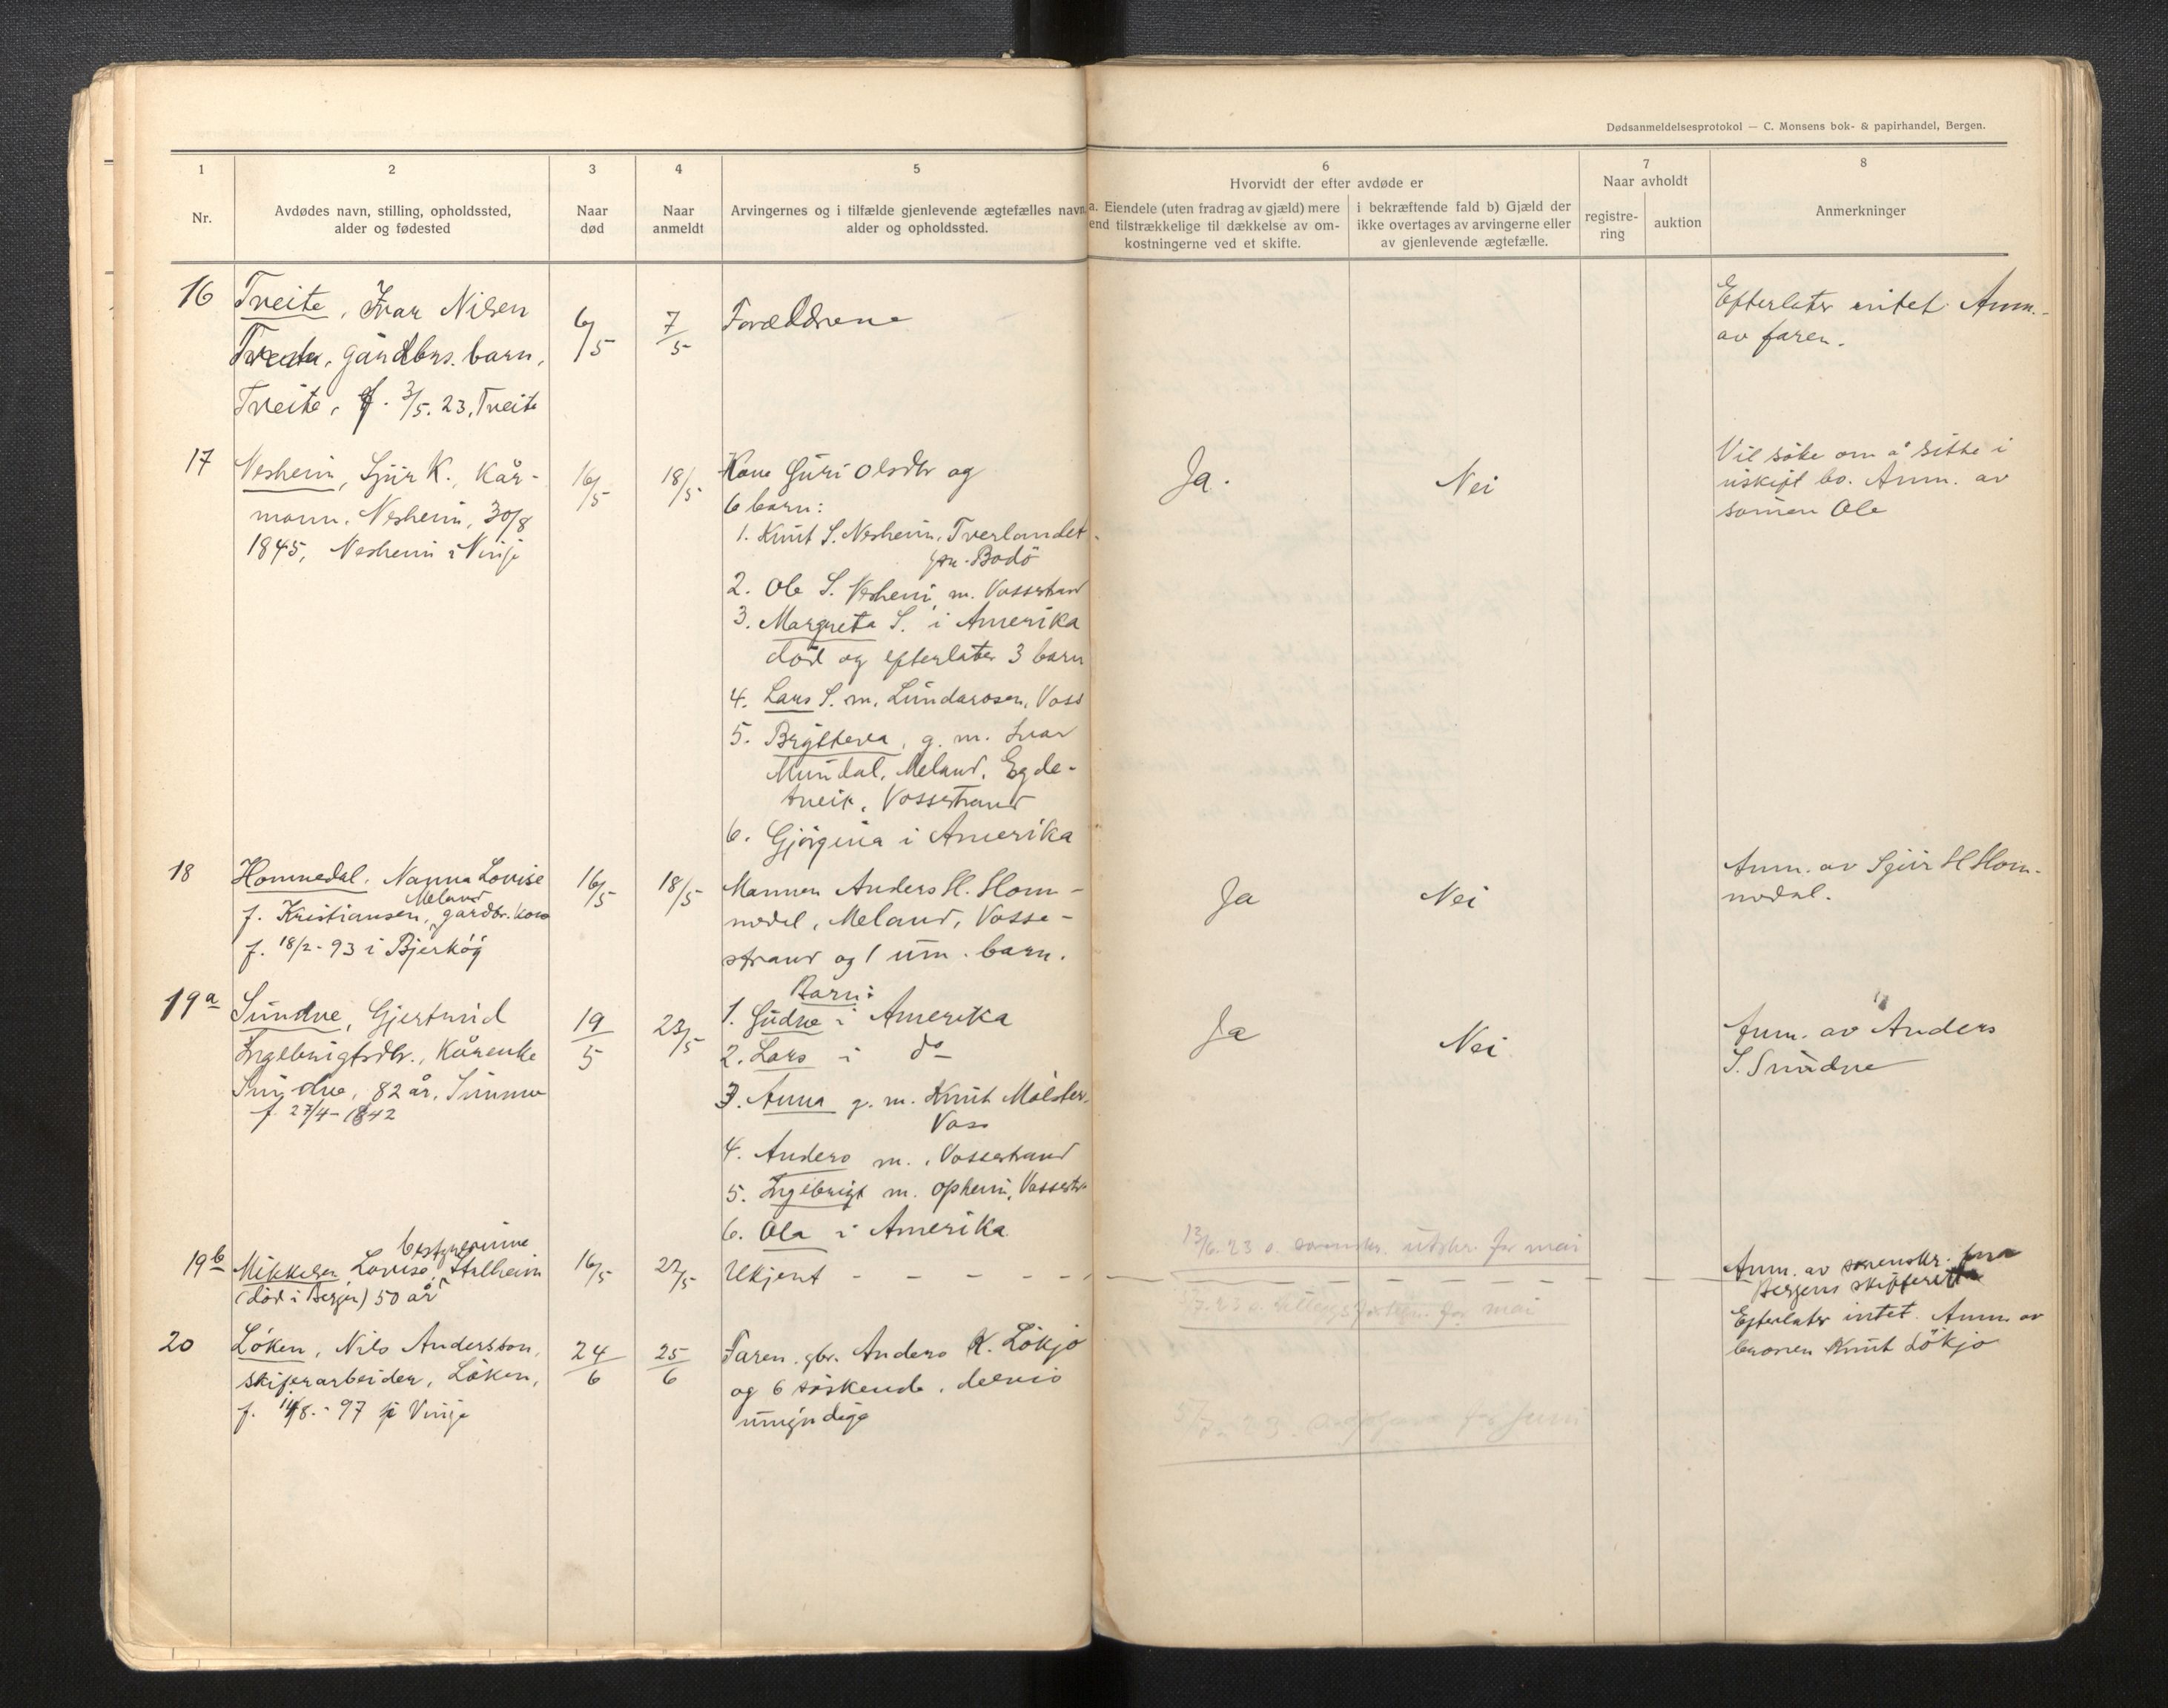 Dødsanmeldelsesprotokol — C. Monsens bok- & papirhandel, Bergen.
1
Nr.
2
Avdødes navn, stilling, opholdssted,
alder og fødested
3
Naar
død
4
Naar
anmeldt
5
Arvingernes og i tilfælde gjenlevende ægtefælles navn
alder og opholdssted.
6
Hvorvidt der efter avdøde er
a. Eiendele (uten fradrag av gjæld) mere
end tilstrækkelige til dækkelse av om-
kostningerne ved et skifte.
i bekræftende fald b) Gjæld der
ikke overtages av arvingerne eller
av gjenlevende ægtefælle.
7
Naar avholdt
registre-
ring
auktion
8
Anmerkninger
16
Tveite, Ivar Nilsen
gårdbrs. barn,
Tveite, f. 3/5. 23, Tveite
6/5
7/5
Forældrene
Efterlater intet. Anm.
av faren.
17
Nesheim, Sjur K., Kår-
mann, Nesheim, 30/8
1845, Nesheim i Vinje
16/5
18/5
Kone Guri Olsdtr og
6 barn:
1. Knut S. Nesheim, Tverlandet
pr. Bodö
2. Ole S. Nesheim, m. Vossestrand
3. Margreta S. i Amerika
död og efterlater 3 barn
4. Lars S. m. Lundarosen, Voss
5. Brytteva, g. m. Ivar
Mundal, Meland, Egde-
tveit, Vossestrand
6. Gjörgina i Amerika
Ja.
Nei
Vil söke om å sitte i
uskift bo. Anm. av
sönen Ole
18
Hommedal, Nanna Lovise
Meland
f. Kristiansen, gardbr. kone
f. 18/2-93 i Bjerköy
16/5
18/5
Mannen Anders H. Hom-
medal, Meland, Vosse-
strand og 1 um. barn.
Ja
Nei
Anm. av Sjur H Hom-
medal.
19a
Sundve, Gjertrud
Ingebrigtsdtr., Kårenke
Sundve, 82 år,
f. 27/4-1842
19/5
23/5
Barn:
1. Gudve i Amerika
2. Lars i do
3. Anna g. m. Knut Mölster,
Voss
4. Anders m., Vossestrand
5. Ingebrigt m. Opheim, Vossestr.
6. Ola i Amerika
Ja
Nei
Anm. av Anders
S. Sundve
19b
bestyrerinne
Mikkelsen Lovise, Stalheim
(död i Bergen) 50 år
16/5
22/5
Ukjent - - - - -
13/6.23 s. utskr. for mai
for mai
Anm. av sorenskr. fra
Bergens skifterett
20
Löken, Nils Andersson,
skiferarbeider, Löken,
f. 14/8.-97 i Vinje
24/6
25/6
Faren, gbr. Anders K. Lökjo
og 6 söskende, delvis
umyndige
Efterlater intet. Anm. av
broren Knut Lökjo
7.23. oppgave for Juni